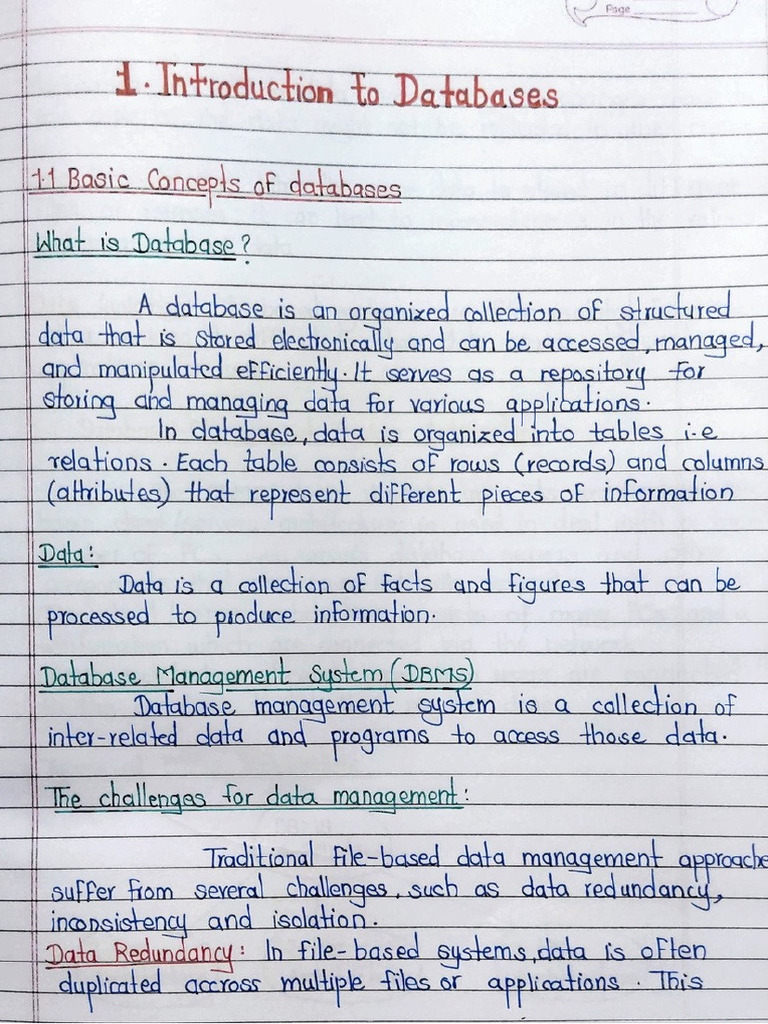 Page
1. Introduction to Databases
1.1 Basic Concepts of databases
What is Database?
A database is an organized collection of structured
data that is stored electronically and can be accessed, managed,
and manipulated efficiently. It serves as a repository for
storing and managing data for various applications.
In database, data is organized into tables i.e
relations. Each table consists of rows (records) and columns
(attributes) that represent different pieces of information
Data:
Data is a collection of facts and figures that can be
processed to produce information.
Database Management System (DBMS)
Database management system is a collection of
inter-related data and programs to access those data.
The challenges for data management:
Traditional file-based data management approache
suffer from several challenges, such as data redundancy,
inconsistency and isolation.
Data Redundancy: In file-based systems, data is often
duplicated accross multiple files or applications. This